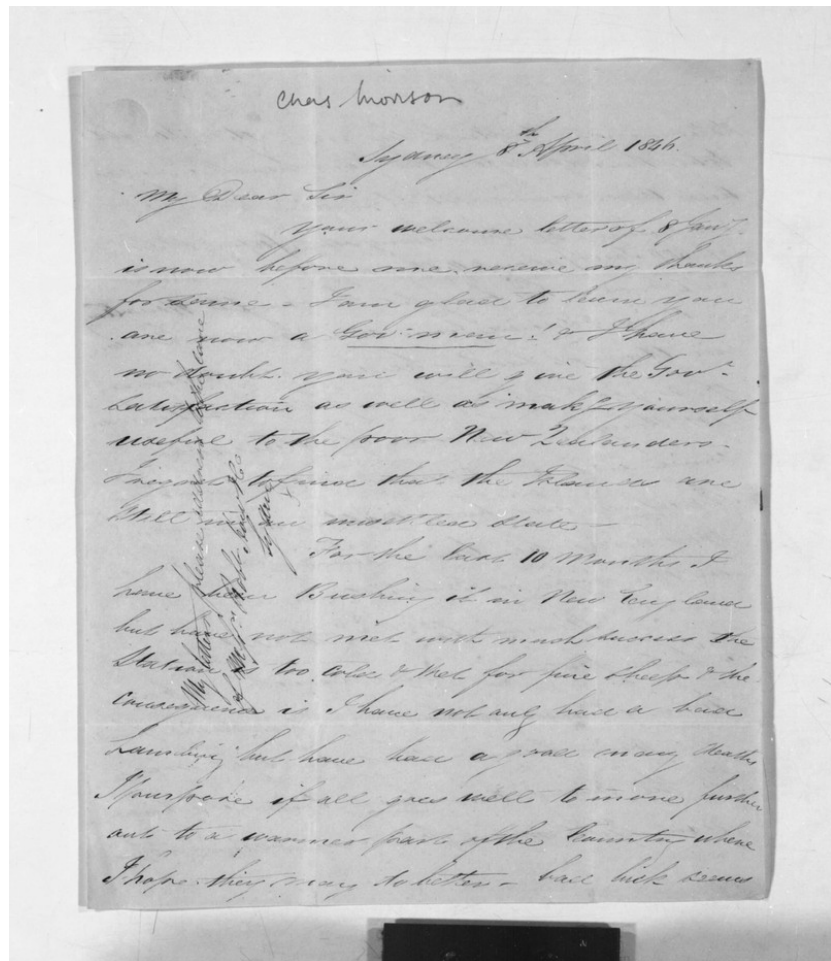 Chas Morison
Sydney 8th April 1846.
My Dear Sir
Your welcome letter of 8 Jany.
is now before me. receive my thanks
for same - I am glad to learn you
are now a Gov. man! & I have
no doubt. you will give the Govt.
satisfaction as well as make yourself
useful to the poor New Zealanders.
I regret to find that the Islands are
still in an unsettled state -
For the last 10 Months I
have been Bushing it in New England
but have not met with much success the
Station is too cold & wet for fine sheep & the
consequence is I have not only had a bad
Lambing but have had a good many deaths
I purpose if all goes well to move further
out to a warmer part of the Country where
I hope they may do better - bad luck seems
My letters please
of Messrs
Sydney